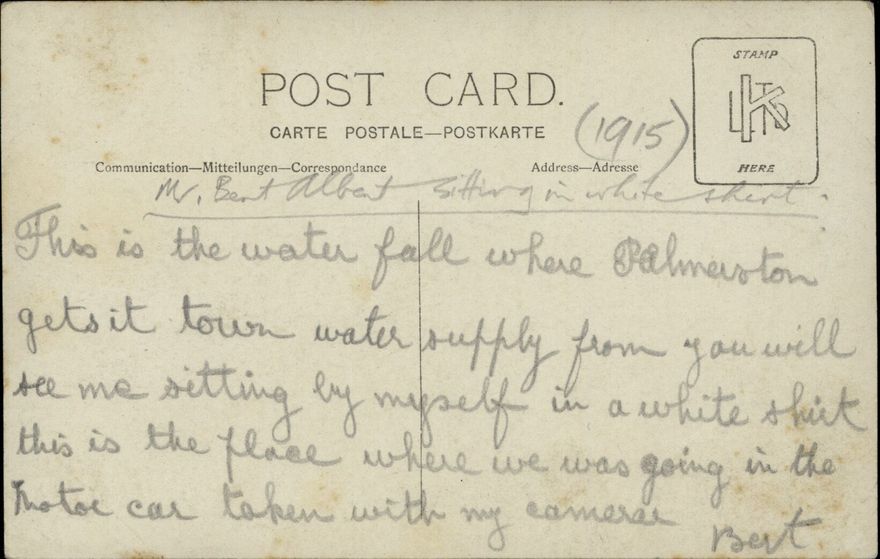 POST CARD.
CARTE POSTALE—POSTKARTE
(1915)
STAMP
HERE
Communication—Mitteilungen—Correspondance
Address—Adresse
Mr. Bert Albert sitting in white shirt.
This is the water fall where Palmerston
gets it town water supply from you will
see me sitting by myself in a white shirt
this is the place where we was going in the
motor car taken with my camerar
Bert